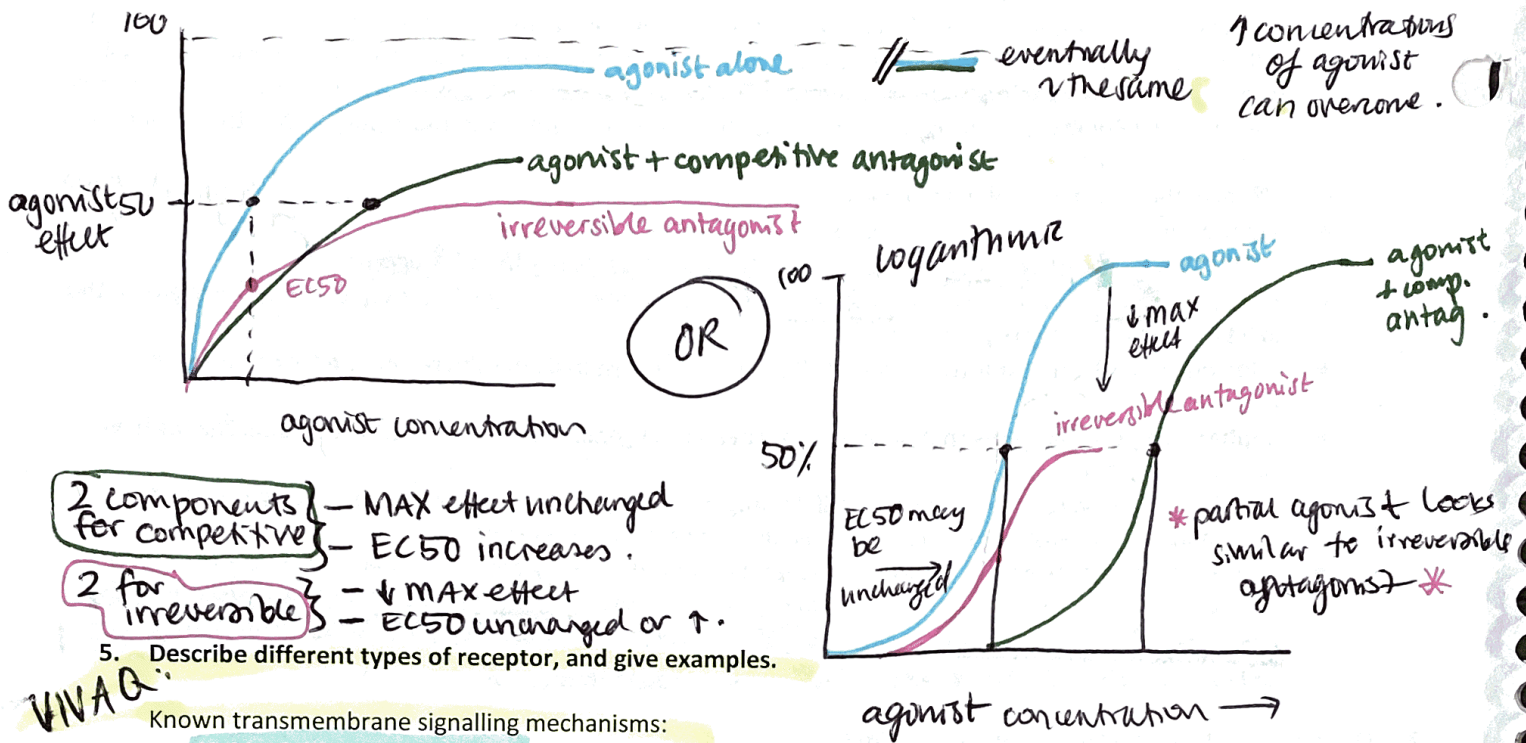 100
agonist alone
eventually
~ the same
↑ concentrations
of agonist
can overcome.
agonist + competitive antagonist
agonist 50
effect
irreversible antagonist
EC50
agonist concentration
OR
Logarithmic
100
agonist
agonist
+ comp.
antag.
↓ max
effect
irreversible antagonist
50%
EC50 may
be
unchanged
* partial agonist looks
similar to irreversible
antagonist *
agonist concentration →
2 components
for competitive
- MAX effect unchanged
- EC50 increases.
2 for
irreversible
- ↓ MAX effect
- EC50 unchanged or ↑.
5. Describe different types of receptor, and give examples.
VIVA Q:
Known transmembrane signalling mechanisms: